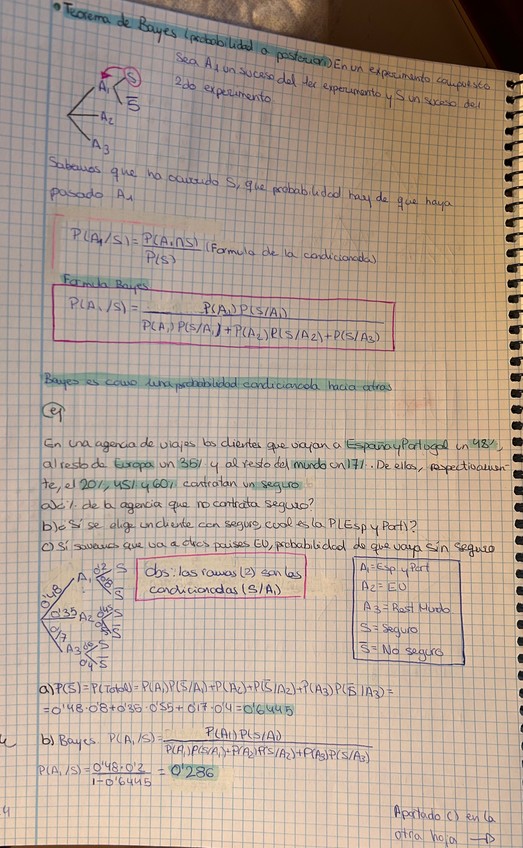 • Teorema de Bayes (probabilidad a posteriori) En un experimento compuesto
Sea A₁ un suceso del 1er experimento y S un suceso del
2do experimento
A₁ S
S̅
A₂
A₃
Sabemos que ha ocurrido S, que probabilidad hay de que haya
pasado A₁
P(A₁/S) = P(A₁∩S) / P(S) (Formula de la condicionada)
Formula Bayes
P(A₁/S) = P(A₁) P(S/A₁) / P(A₁) P(S/A₁) + P(A₂) P(S/A₂) + P(S/A₃)
Bayes es como una probabilidad condicionada hacia atras
ej
En una agencia de viajes los clientes que viajan a España y Portugal un 48%,
al resto de Europa un 35% y al resto del mundo un 17%. De ellos, respectivamen-
te, el 20%, 45% y 60% contratan un seguro
a) ¿% de la agencia que no contrata seguro?
b) ¿Si se elige un cliente con seguro, cual es la P(Esp y Port)?
c) Si sabemos que va a otros paises EU, probabilidad de que vaya sin seguro
0'48 A₁ 0'2 S
0'8 S̅
0'35 A₂ 0'45 S
0'55 S̅
0'17 A₃ 0'6 S
0'4 S̅
obs: las ramas (2) son las
condicionadas (S/A₁)
A₁ = Esp y Port
A₂ = EU
A₃ = Rest Mundo
S = Seguro
S̅ = No seguro
a) P(S̅) = P(Total) = P(A₁) P(S̅/A₁) + P(A₂) + P(S̅/A₂) + P(A₃) P(S̅/A₃) =
= 0'48 · 0'8 + 0'35 · 0'55 + 0'17 · 0'4 = 0'6445
b) Bayes P(A₁/S) = P(A₁) P(S/A₁) / P(A₁) P(S/A₁) + P(A₂) P(S/A₂) + P(A₃) P(S/A₃)
P(A₁/S) = 0'48 · 0'2 / 1 - 0'6445 = 0'286
Apartado c) en la
otra hoja →